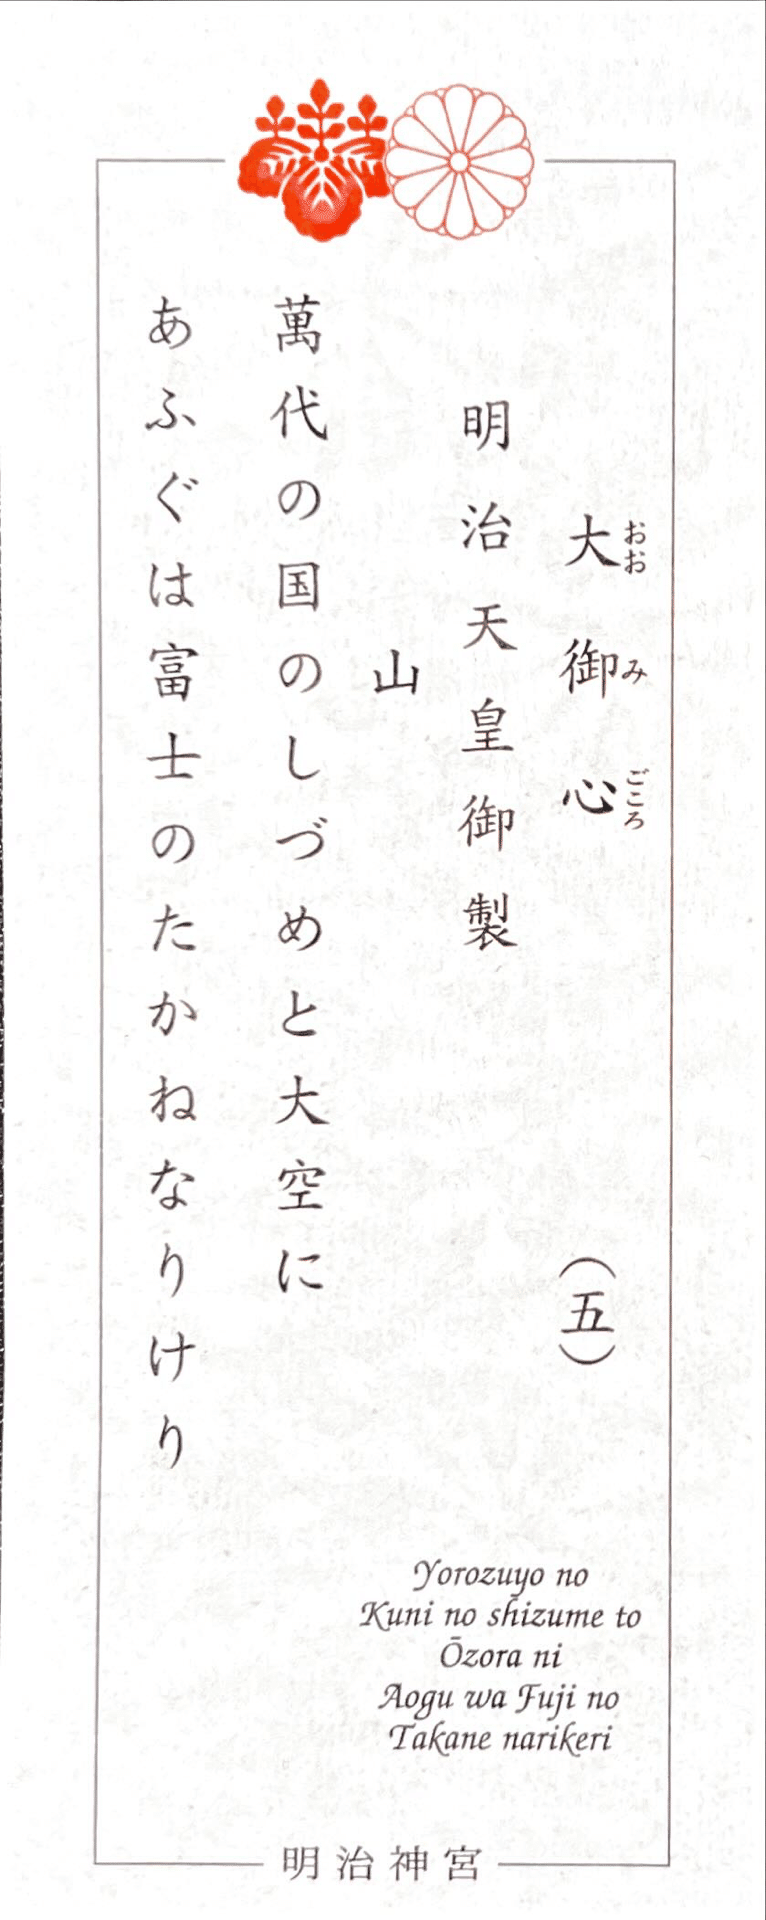 大御心 (五)
おおみごころ
明治天皇御製
山
萬代の国のしづめと大空に
あふぐは富士のたかねなりけり
Yorozuyo no
Kuni no shizume to
Ōzora ni
Aogu wa Fuji no
Takane narikeri
明治神宮